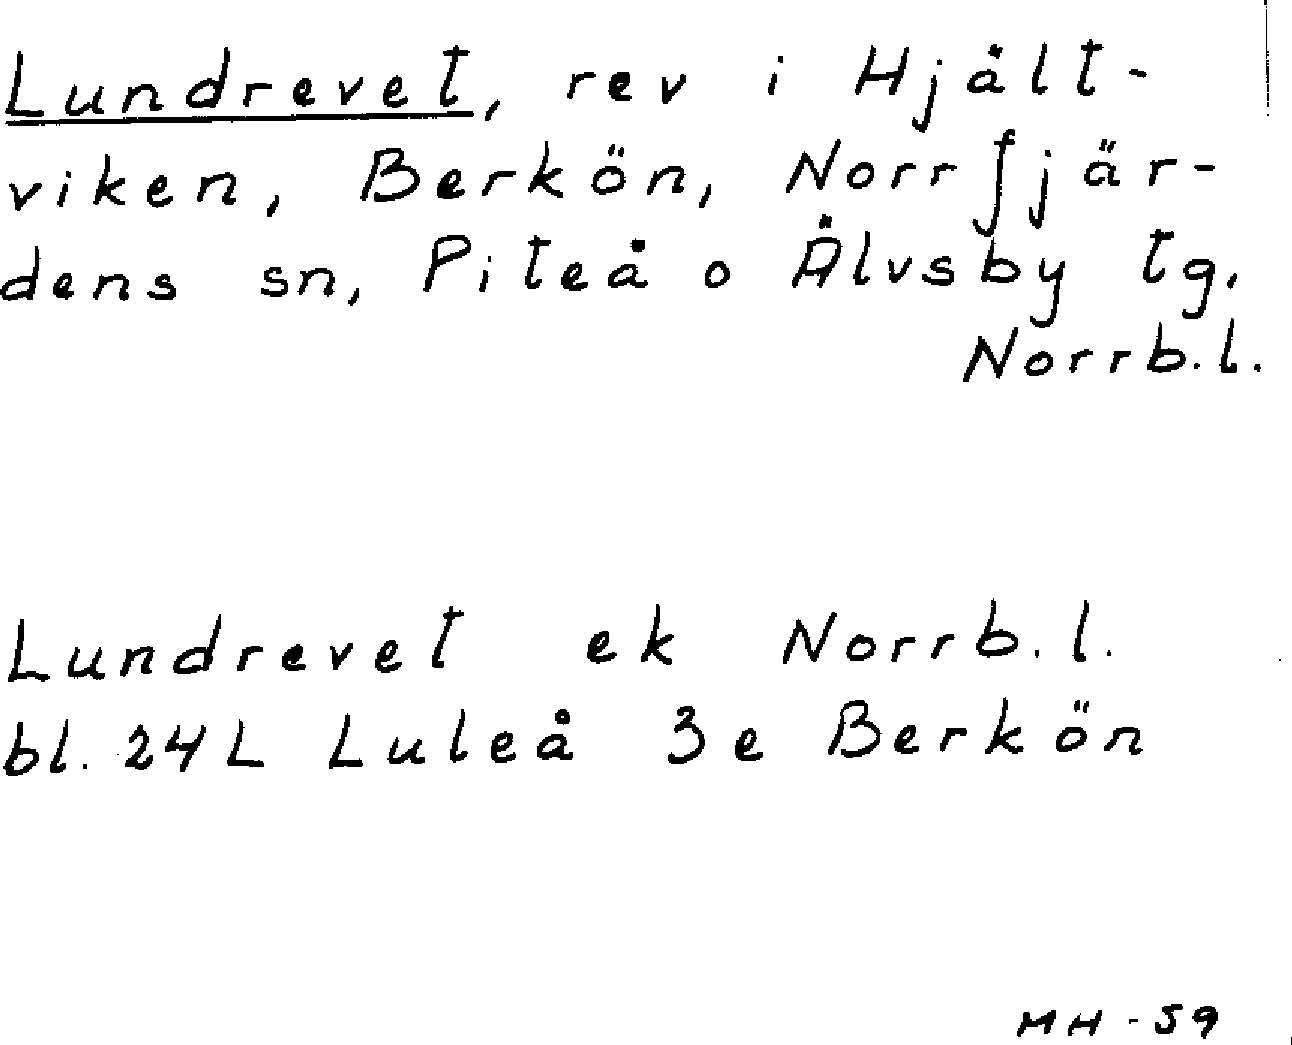 Lundrevet, rev i Hjält-
viken, Berkön, Norrfjär-
dens sn, Piteå o Älvsby tg,
Norrb.l.
Lundrevet ek Norrb.l.
bl. 24L Luleå 3e Berkön
MH-59